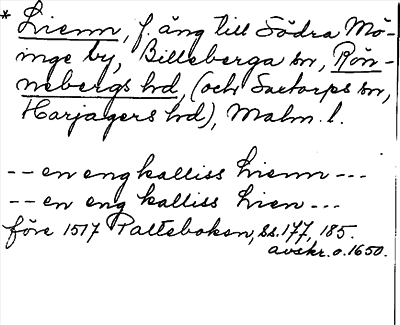 * Lienn, f. äng till Södra Mö-
inge by, Billeberga sn, Rön-
nebergs hd, (och Saxtorps sn,
Harjagers hd), Malm. l.
-- en eng kalliss Lienn ---
-- en eng kalliss Lien ---
före 1517 Palteboken, ss. 177, 185.
avskr. o. 1650.